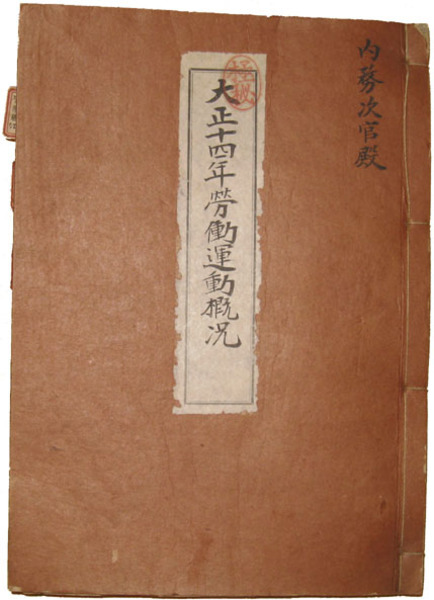 内務次官殿
大正十四年勞働運動概況
極秘